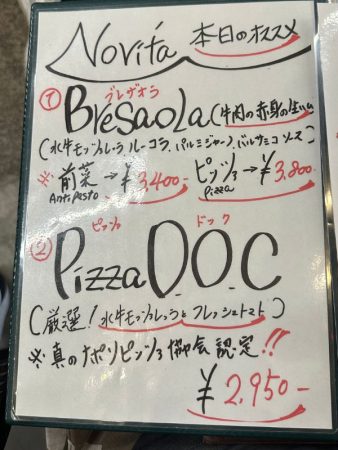 Novità 本日のオススメ
ブレザオラ
① Bresaola (牛肉の赤身の生ハム
(水牛モッツァレラ ルーコラ、パルミジャーノ、バルサミコソース)
※ 前菜 → ¥3,400- ピッツァ → ¥3,800-
Antipasto Pizza
ピッツァ ドック
② Pizza D.O.C
(厳選! 水牛モッツァレラとフレッシュトマト)
※ 真のナポリピッツァ協会 認定!!
¥2,950-